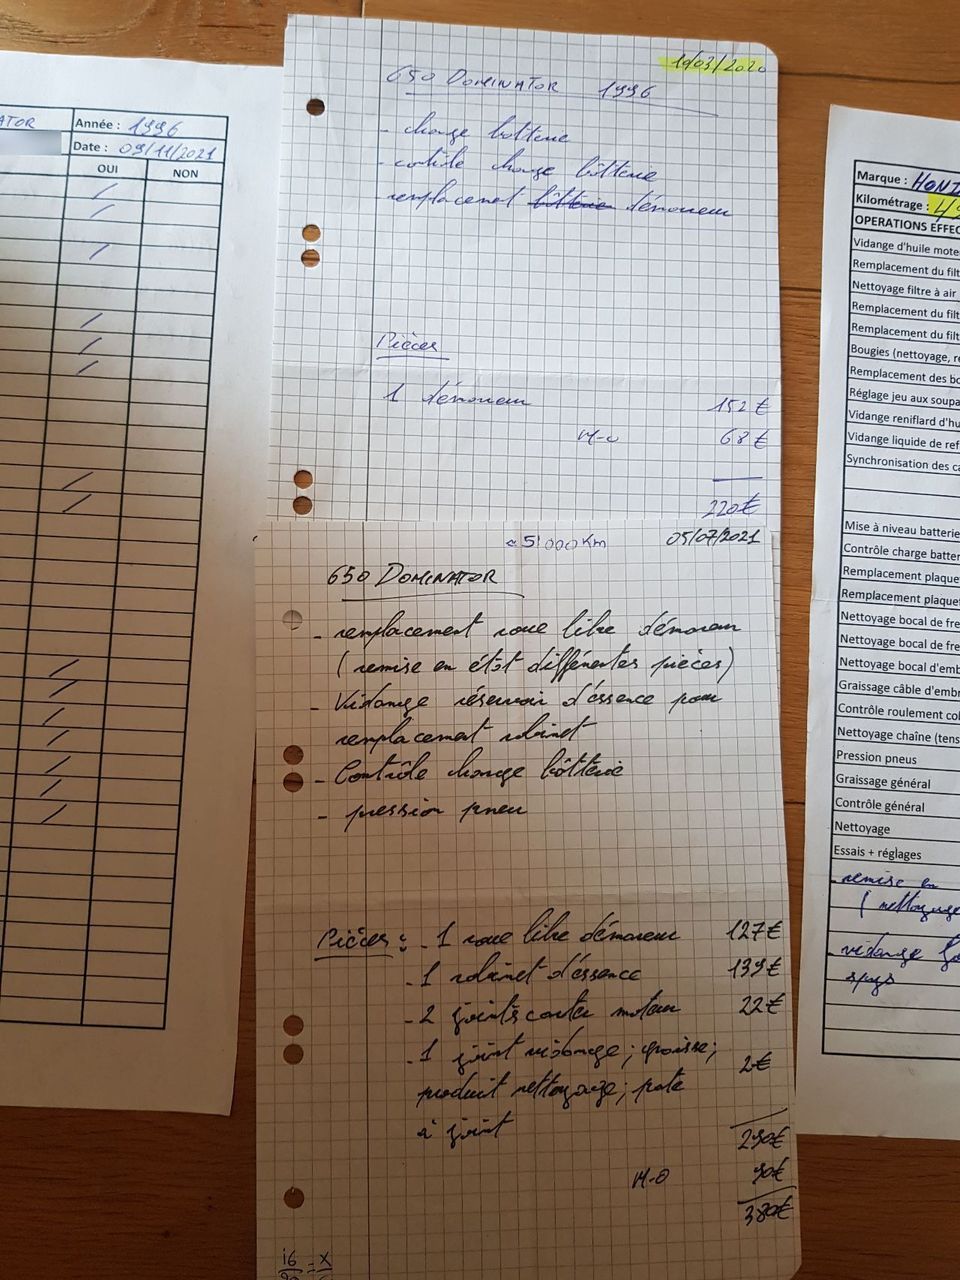 ATOR
Année : 1996
Date : 09/11/2021
OUI NON
10/03/2020
650 DOMINATOR 1996
- charge batterie
- contrôle charge batterie
- remplacement batterie démarreur
Pièces
1 démarreur 152 €
M-O 68 €
220 €
51000 Km 05/07/2021
650 DOMINATOR
- remplacement roue libre démarreur
(remise en état différentes pièces)
- Vidange réservoir d'éssence pour
remplacement robinet
- Contrôle charge batterie
- pression pneu
Pièces : - 1 roue libre démarreur 127 €
- 1 robinet d'éssence 139 €
- 2 joints carter moteur 22 €
- 1 joint vidange ; graisse ;
produit nettoyage ; pate 2 €
à joint
290 €
M-O 90 €
380 €
16 = X
Marque : HON
Kilométrage : 49
OPERATIONS EFFEC
Vidange d'huile mote
Remplacement du filt
Nettoyage filtre à air
Remplacement du filt
Remplacement du filt
Bougies (nettoyage, re
Remplacement des bo
Réglage jeu aux soupa
Vidange reniflard d'hu
Vidange liquide de ref
Synchronisation des ca
Mise à niveau batterie
Contrôle charge batter
Remplacement plaque
Remplacement plaque
Nettoyage bocal de fre
Nettoyage bocal de fre
Nettoyage bocal d'emb
Graissage câble d'embr
Contrôle roulement col
Nettoyage chaîne (tens
Pression pneus
Graissage général
Contrôle général
Nettoyage
Essais + réglages
- remise en
( nettoyage
- vidange